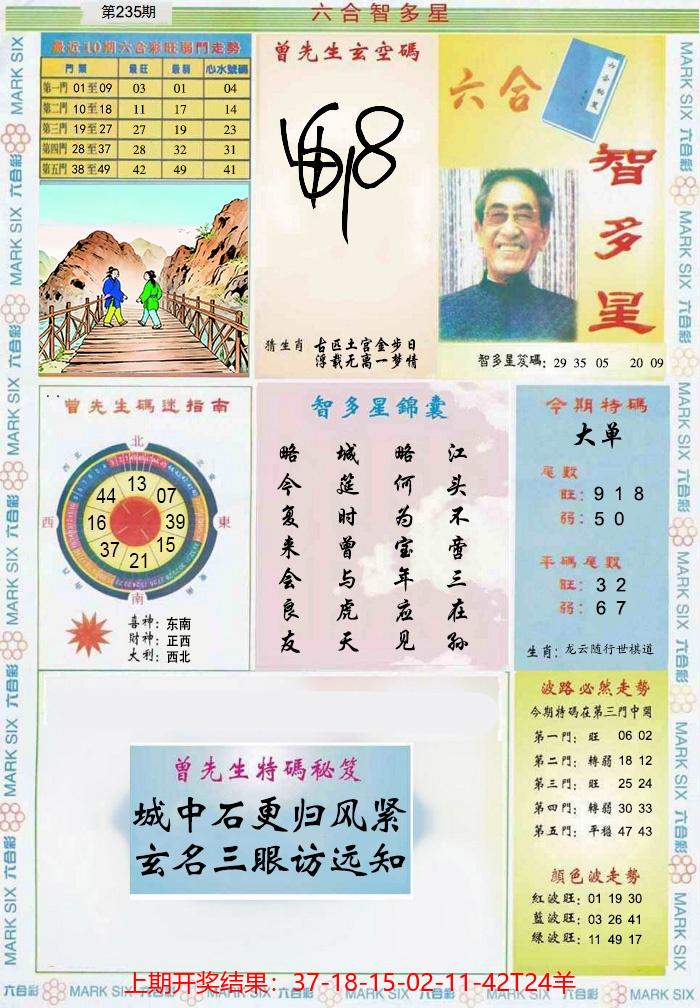 第235期
六合智多星
最近10期六合彩旺弱門走勢
門類 最旺 最弱 心水號碼
第一門 01至09 03 01 04
第二門 10至18 11 17 14
第三門 19至27 27 19 23
第四門 28至37 28 32 31
第五門 38至49 42 49 41
曾先生玄空碼
猜生肖 古匹土宫金步日
浮载无离一梦情
六合
六合秘笈
智多星
智多星笈碼: 29 35 05 20 09
曾先生碼迷指南
北
西
東
南
13
07
39
15
21
37
16
44
喜神: 东南
财神: 正西
大利: 西北
智多星錦囊
江头不啻三在孙
略何为宝年应见
城筵时曾与虎天
略今复来会良友
今期特碼
大单
尾數
旺: 9 1 8
弱: 5 0
平碼尾數
旺: 3 2
弱: 6 7
生肖: 龙云随行世棋道
曾先生特碼秘笈
城中石更归风紧
玄名三眼访远知
波路必然走勢
今期特碼在第三門中開
第一門: 旺 06 02
第二門: 轉弱 18 12
第三門: 旺 25 24
第四門: 轉弱 30 33
第五門: 平穩 47 43
顏色波走勢
紅波旺: 01 19 30
藍波旺: 03 26 41
綠波旺: 11 49 17
MARK SIX 六合彩
上期开奖结果：37-18-15-02-11-42T24羊